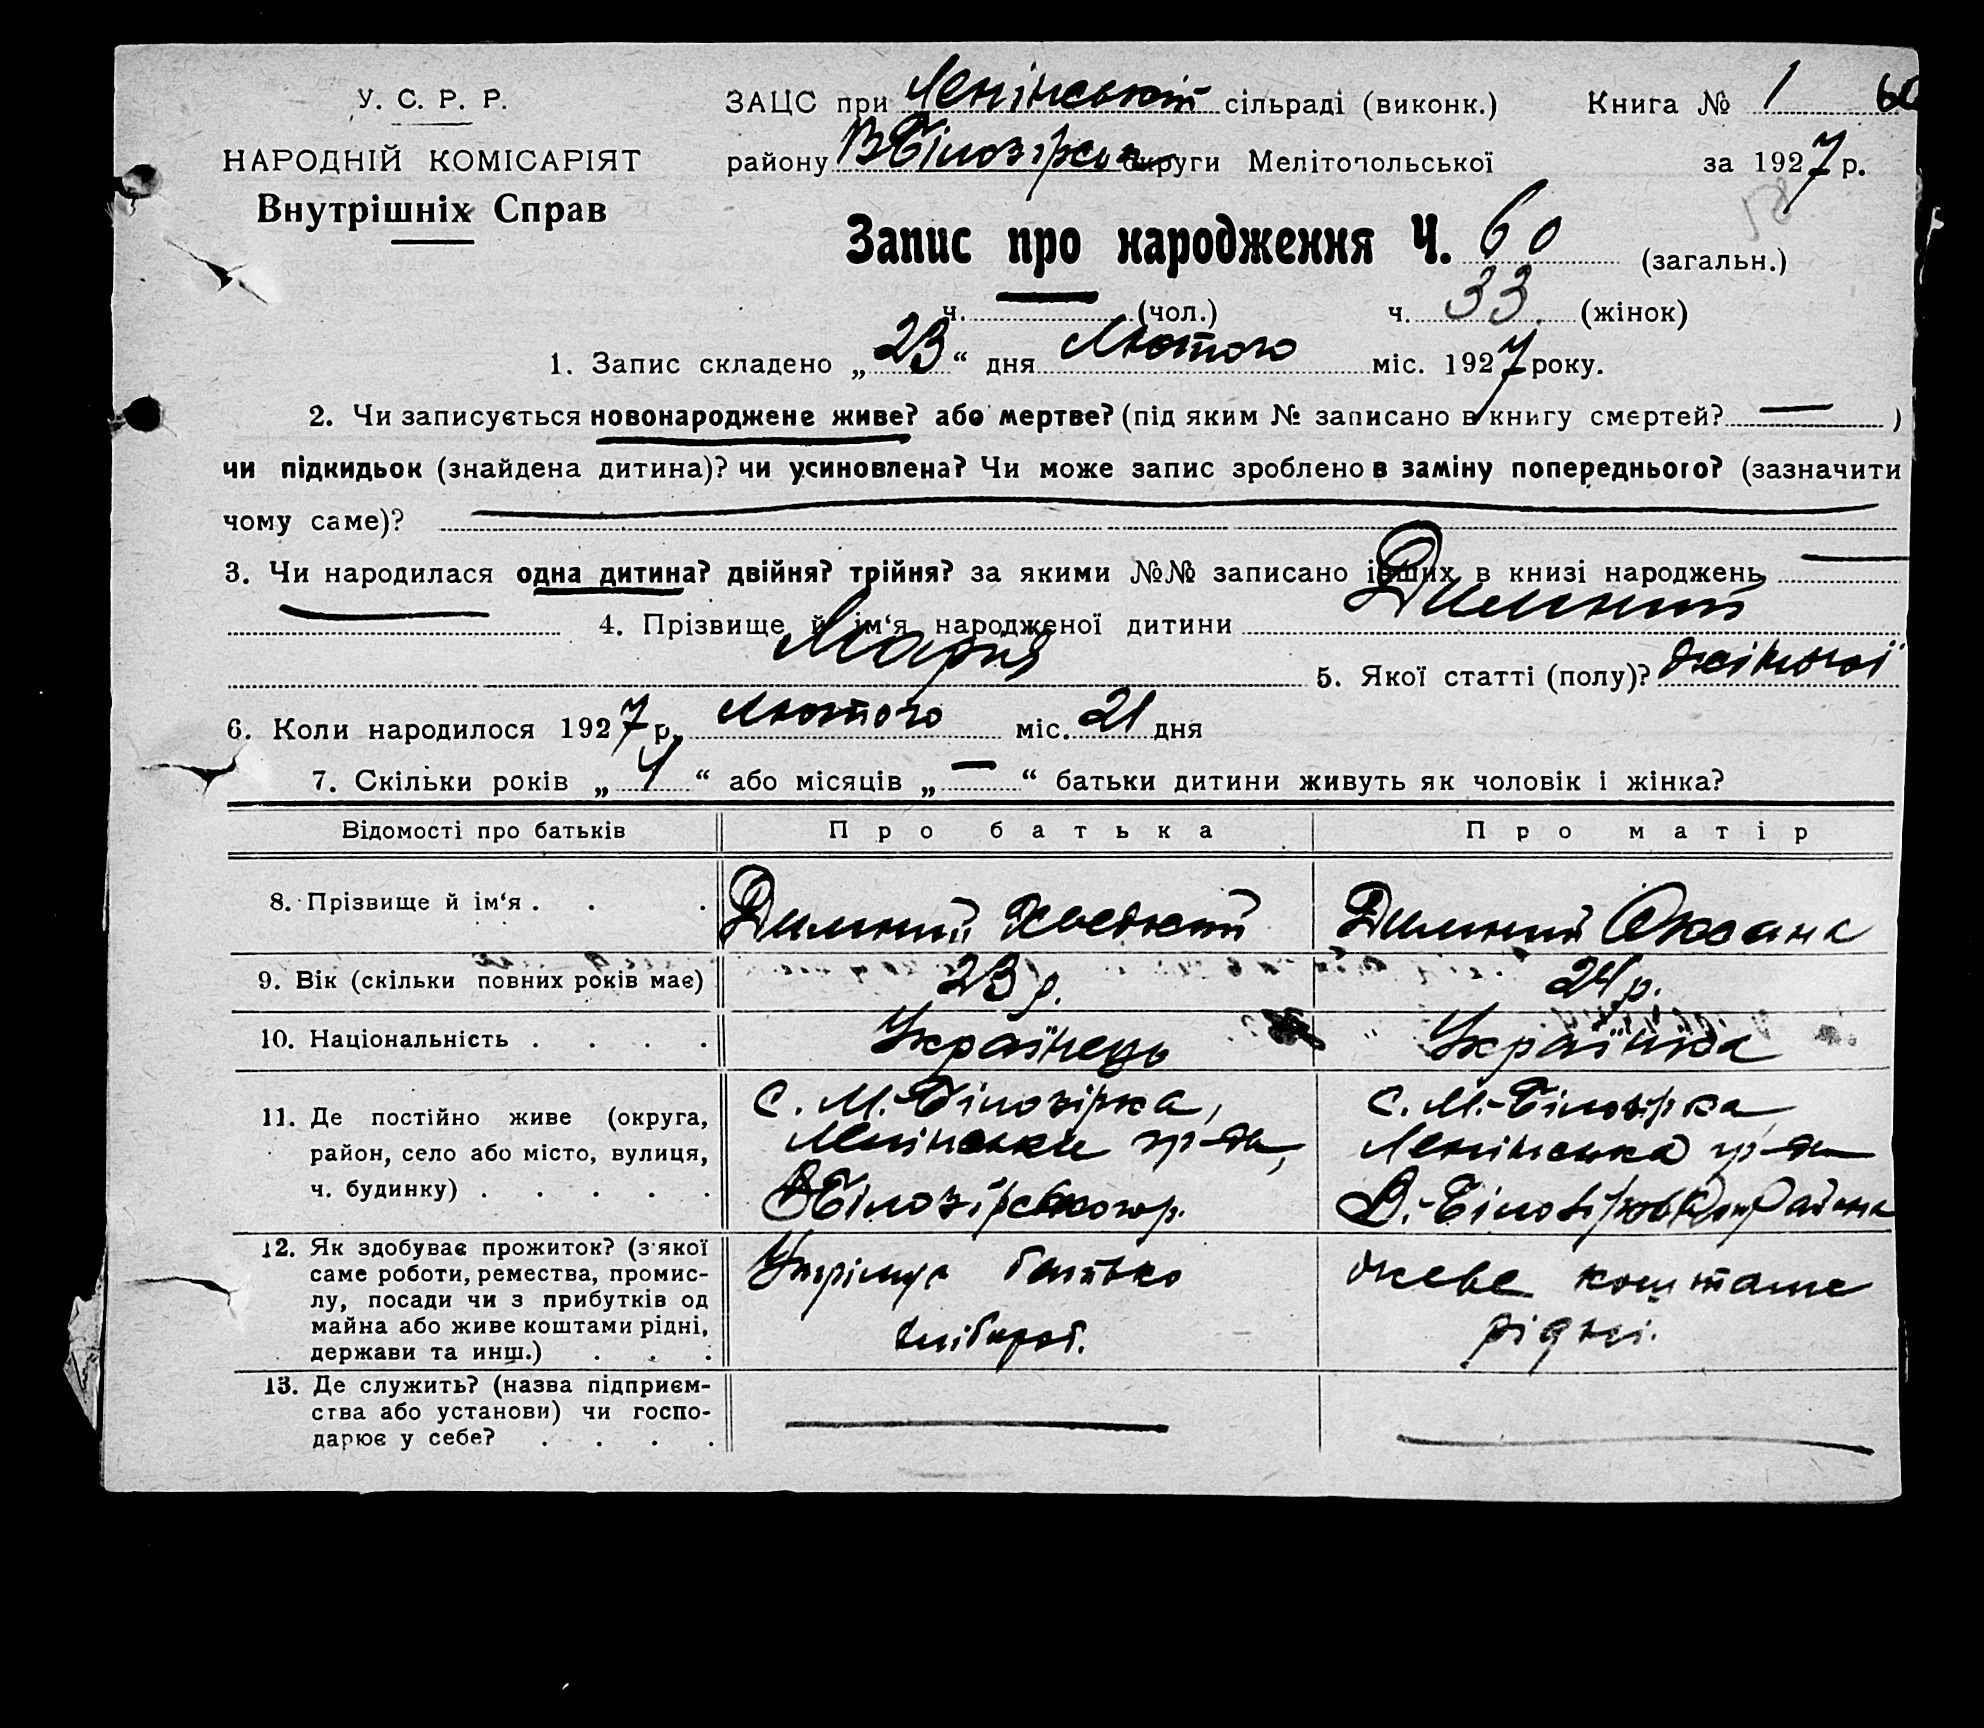 У. С. Р. Р.
НАРОДНІЙ КОМІСАРІЯТ
Внутрішніх Справ
ЗАЦС при Ленінській сільраді (виконк.) Книга № 1 60
району ВБілозірськ округи Мелітопольської за 1927 р.
Запис про народження Ч. 60 (загальн.)
ч. (чол.) ч. 33. (жінок)
1. Запис складено „23“ дня Лютого міс. 1927 року.
2. Чи записується новонароджене живе? або мертве? (під яким № записано в книгу смертей? — )
чи підкидьок (знайдена дитина)? чи усиновлена? Чи може запис зроблено в заміну попереднього? (зазначити
чому саме)?
3. Чи народилася одна дитина? двійня? трійня? за якими №№ записано інших в книзі народжень —
4. Прізвище й ім‘я народженої дитини Димний
Мария 5. Якої статті (полу)? жіночої
6. Коли народилося 1927 р. Лютого міс. 21 дня
7. Скільки років „4“ або місяців „—“ батьки дитини живуть як чоловік і жінка?
Відомості про батьків Про батька Про матір
8. Прізвище й ім‘я . . . Димний Димний Оксана
9. Вік (скільки повних років має) 23 р. 24 р.
10. Національність . . . . Українець Українка
11. Де постійно живе (округа, с. М.-Білозірка, с. М.-Білозірка
район, село або місто, вулиця, Ленінська
ч. будинку) . . . . . ВБілозірського р. В.-Білозірського Района
12. Як здобуває прожиток? (з якої Утрімує батько живе коштами
саме роботи, ремества, промис-
лу, посади чи з прибутків од хлібороб. рідні.
майна або живе коштами рідні,
держави та инш.) . . .
13. Де служить? (назва підприєм-
ства або установи) чи госпо-
дарює у себе? . . . .